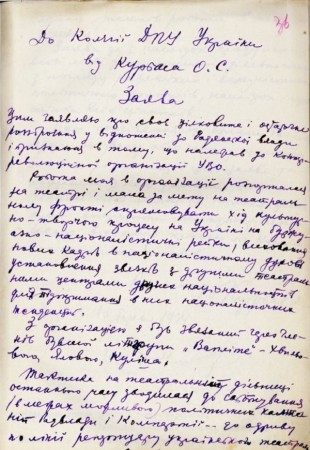 До Колегії ДПУ України
від Курбаса О.С.
Заява
Цим заявляю про своє цілковите і остаточне
роззброєння у відношенні до Радянської влади
і признаюся в тому, що належав до Контр-
революційної організації УВО.
Робота моя в організації розгорталася
на театрі і мала за мету на театраль-
ному фронті спрямовувати хід культур-
но-творчого процесу на Україні на буржу-
азно-націоналістичні рейки, виховання
нових кадрів в націоналістичному дусі
установлення звязків з другими театраль-
ними центрами других національностів
для підтримання в них націоналістичних
тенденцій.
З організацією я був звязаний через чле-
нів бувшої літгрупи „Вапліте" - Хвильо-
вого, Ялового, Куліша.
Тактика на театральній дільниці
останнього часу зводилася до саботування
(в межах можливого) політичних кампа-
ній Радвлади і Компартії -- до одриву
по лінії репертуару українського театру